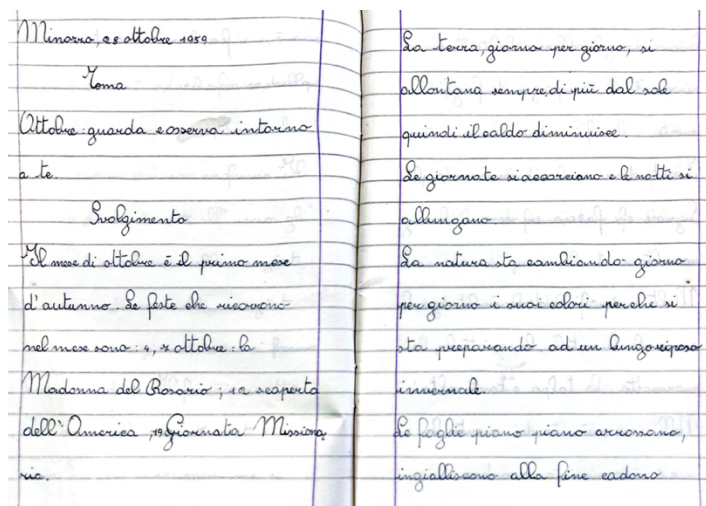 Minozzo, 28 ottobre 1959
Tema
Ottobre: guarda e osserva intorno
a te.
Svolgimento
Il mese di ottobre è il primo mese
d'autunno. Le feste che ricorrono
nel mese sono: 4, 7 ottobre: la
Madonna del Rosario; 12 scoperta
dell'America, 19 Giornata Missiona
ria.
La terra, giorno per giorno, si
allontana sempre, di più dal sole
quindi il caldo diminuisce.
Le giornate si accorciano e le notti si
allungano.
La natura sta cambiando giorno
per giorno i suoi colori perché si
sta preparando ad un lungo riposo
invernale.
Le foglie piano piano arrossano,
ingialliscono alla fine cadono